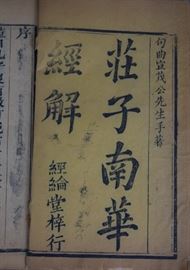 句曲宣茂公先生手著
莊子南華
經解
經綸堂梓行
序